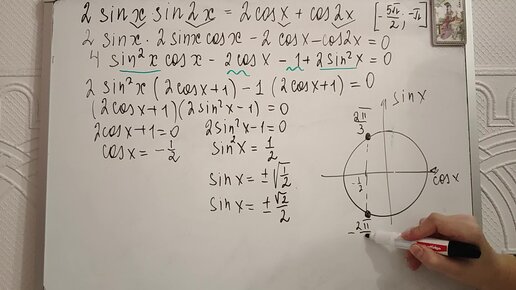 2 sin x sin 2x = 2 cos x + cos 2x [-5π/2; -π]
2 sin x · 2 sin x cos x - 2 cos x - cos 2x = 0
4 sin²x cos x - 2 cos x - 1 + 2 sin²x = 0
2 sin²x (2 cos x + 1) - 1 (2 cos x + 1) = 0
(2 cos x + 1)(2 sin²x - 1) = 0
2 cos x + 1 = 0 2 sin²x - 1 = 0
cos x = -1/2 sin²x = 1/2
sin x = ±√(1/2)
sin x = ±√2/2
sin x
2π/3
-1/2
cos x
-2π/3